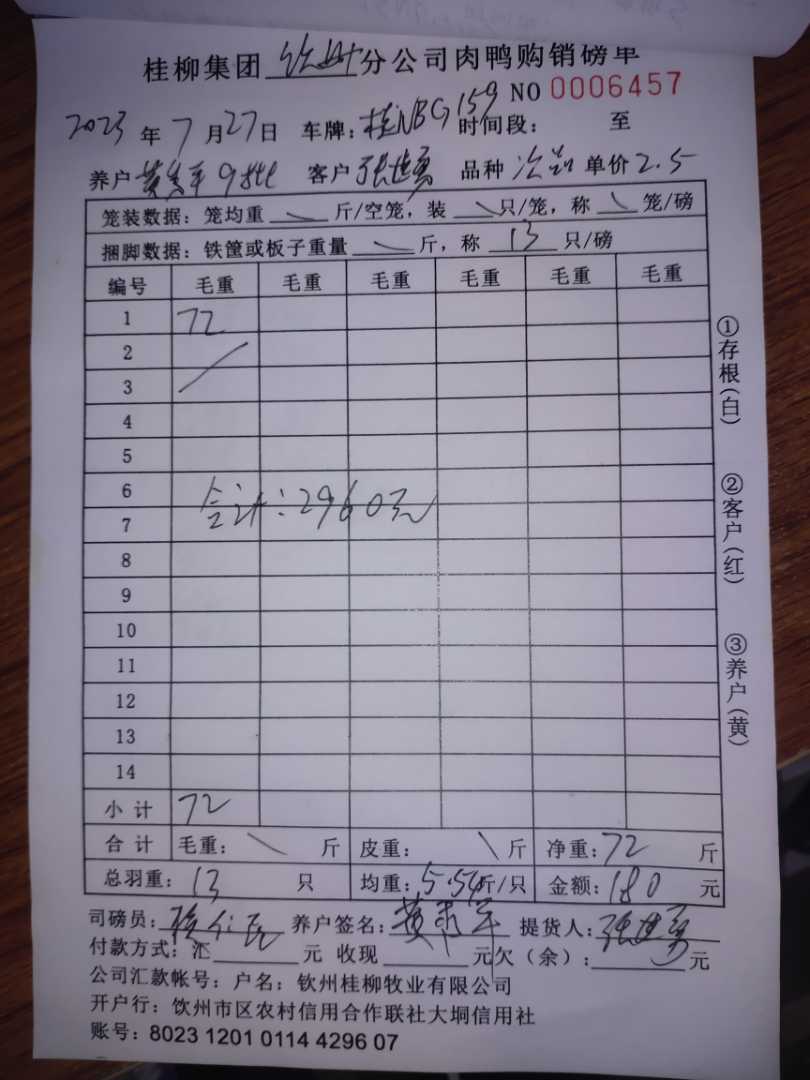 桂柳集团 钦州 分公司肉鸭购销磅单
NO 0006457
2023 年 7 月 27 日 车牌: 桂NBG159 时间段: 至
养户 黄 9批 客户 张世勇 品种 次品 单价 2.5
笼装数据: 笼均重 \ 斤/空笼, 装 \ 只/笼, 称 \ 笼/磅
捆脚数据: 铁筐或板子重量 \ 斤, 称 13 只/磅
编号 毛重 毛重 毛重 毛重 毛重 毛重
1 72
2
3
4
5
6
合计:2960元
7
8
9
10
11
12
13
14
小计 72
合计 毛重: \ 斤 皮重: \ 斤 净重: 72 斤
总羽重: 13 只 均重: 5.54 斤/只 金额: 180 元
司磅员: 养户签名: 黄 提货人: 张世勇
付款方式: 汇 元 收现 元 欠(余): 元
公司汇款帐号: 户名: 钦州桂柳牧业有限公司
开户行: 钦州市区农村信用合作联社大垌信用社
账号: 8023 1201 0114 4296 07
①存根(白)
②客户(红)
③养户(黄)